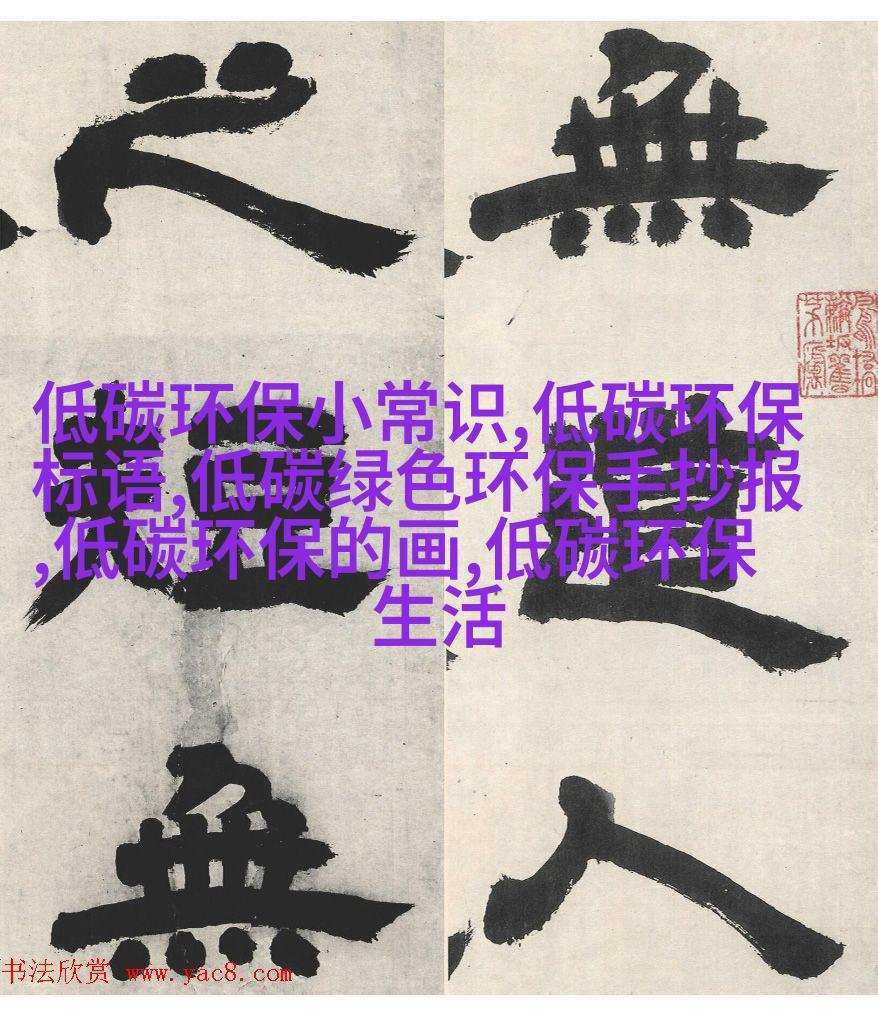 無道人
之短無
低碳环保小常识,低碳环保
标语,低碳绿色环保手抄报
,低碳环保的画,低碳环保
生活
书法欣赏 www.yac8.com